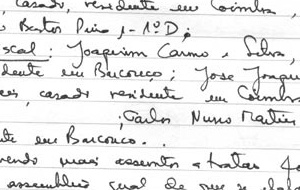 casado, residente em Coimbra,
Bastos Pina, 1-1º D;
scal: Joaquim Carmo e Silva,
dente em Barcouço; José Joaqu
casado residente em Coimbra
;Carlos Nuno Martins
te em Barcouço.
vendo mais assuntos a tratar
assembleia geral de que se